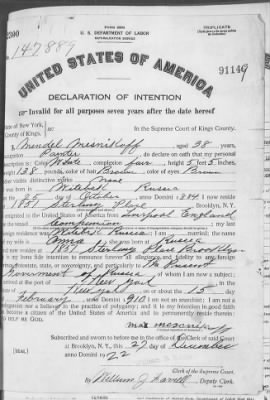 U. S. DEPARTMENT OF LABOR
NATURALIZATION SERVICE
147889
91149
UNITED STATES OF AMERICA
DECLARATION OF INTENTION
or Invalid for all purposes seven years after the date hereof
State of New York,
County of Kings,
In the Supreme Court of Kings County.
I, Mendel aged 38 years,
occupation Painter, do declare on oath that my personal
description is: Color White, complexion fair, height 5 feet 5 inches,
weight 138 pounds, color of hair Brown, color of eyes Brown
other visible distinctive marks None
I was born in Witebsk Russia
on the 25 day of October, anno Domini 1884; I now reside
at 1881 Sterling Place Brooklyn, N.Y.
I emigrated to the United States of America from Liverpool England
on the vessel
Witebsk Russia; I am married; the name
of my wife is Anna; she was born at Russia
and now resides at 1881 Sterling Place Brooklyn
It is my bona fide intention to renounce forever all allegiance and fidelity to any foreign
prince, potentate, state, or sovereignty, and particularly to The Present
Government of Russia, of whom I am now a subject;
I arrived at the port of New York, in the
State of New York, on or about the 15 day
of February, anno Domini 1910; I am not an anarchist; I am not a
polygamist nor a believer in the practice of polygamy; and it is my intention in good faith
to become a citizen of the United States of America and to permanently reside therein:
SO HELP ME GOD.
Subscribed and sworn to before me in the office of the Clerk of said Court
at Brooklyn, N. Y., this 27 day of December
anno Domini 1922
[SEAL]
Clerk of the Supreme Court.
By William J. , Deputy Clerk.